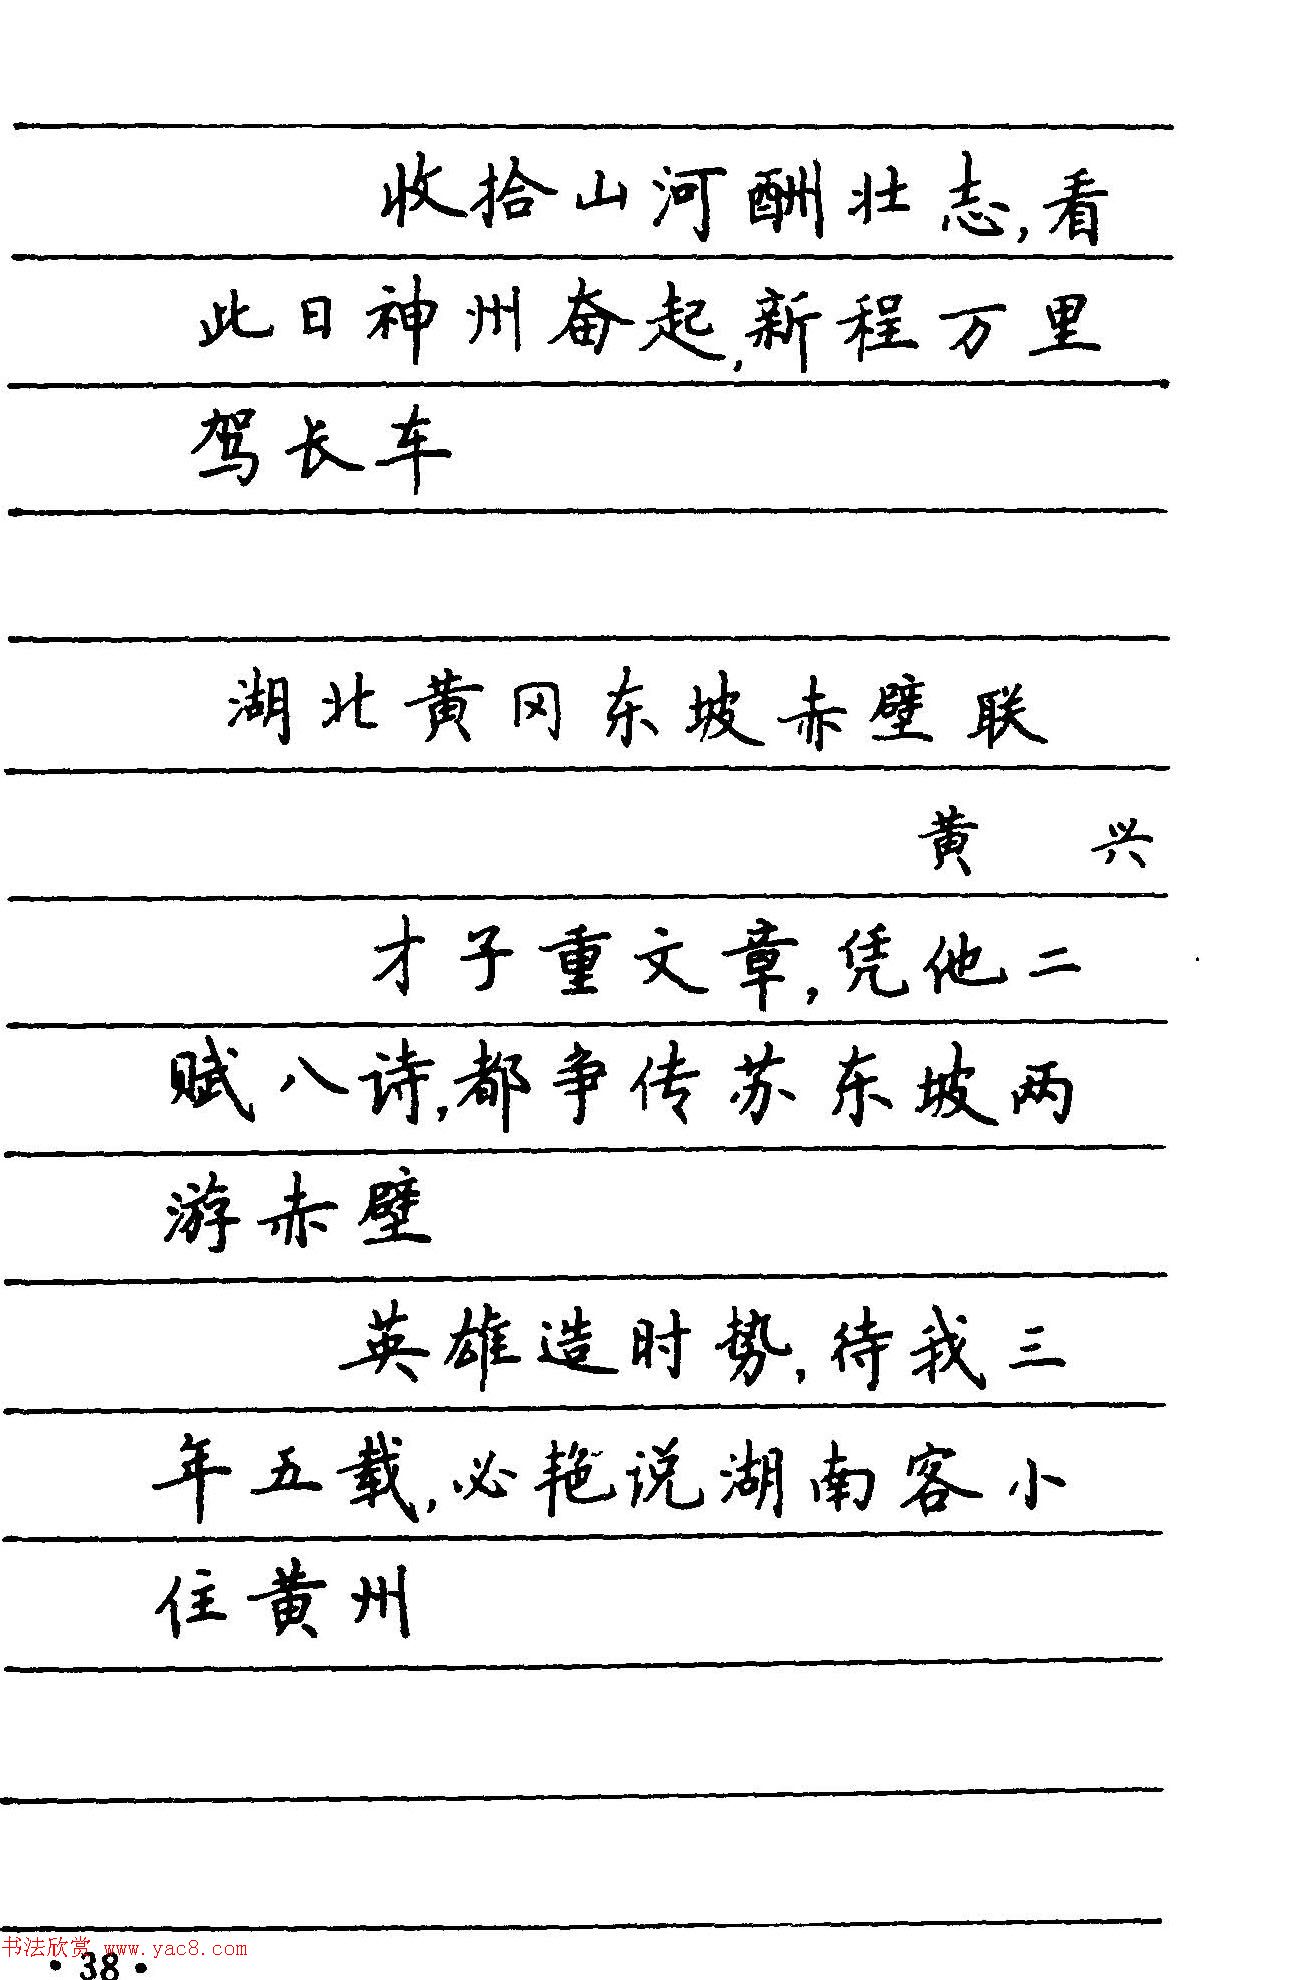 收拾山河酬壮志,看
此日神州奋起,新程万里
驾长车
湖北黄冈东坡赤壁联
黄 兴
才子重文章,凭他二
赋八诗,都争传苏东坡两
游赤壁
英雄造时势,待我三
年五载,必艳说湖南客小
住黄州
书法欣赏 www.yac8.com
·38·